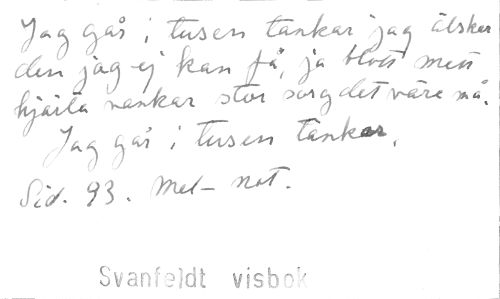 Jag går i tusen tankar jag älskar
den jag ej kan få, ja blott mitt
hjärta vankar stor sorg det väre må.
Jag går i tusen tankar.
Sid. 93. Mel- not.
Svanfeldt visbok